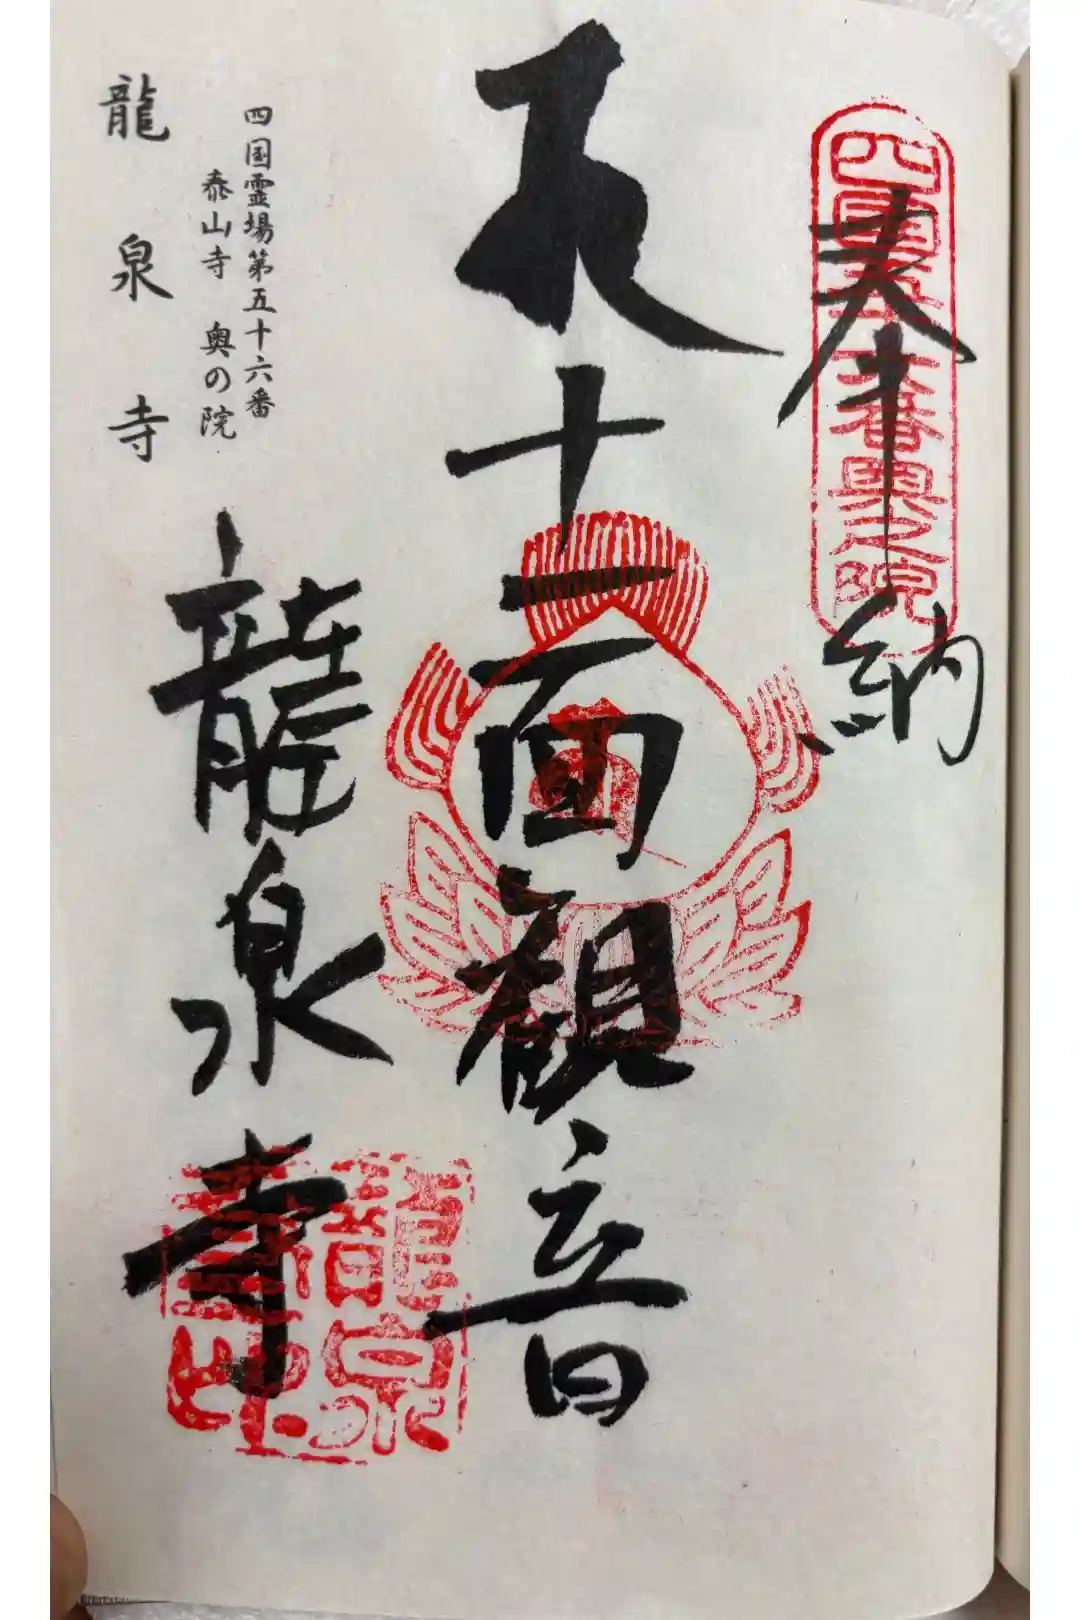 奉納
四国五十六番奥之院
十一面観音
龍泉寺
龍泉寺印
四国霊場第五十六番
泰山寺 奥の院
龍泉寺